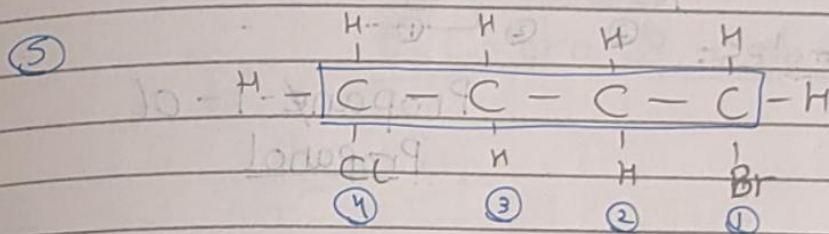 ⑤
H H H H
H - C - C - C - C - H
Cl H H Br
④ ③ ② ①